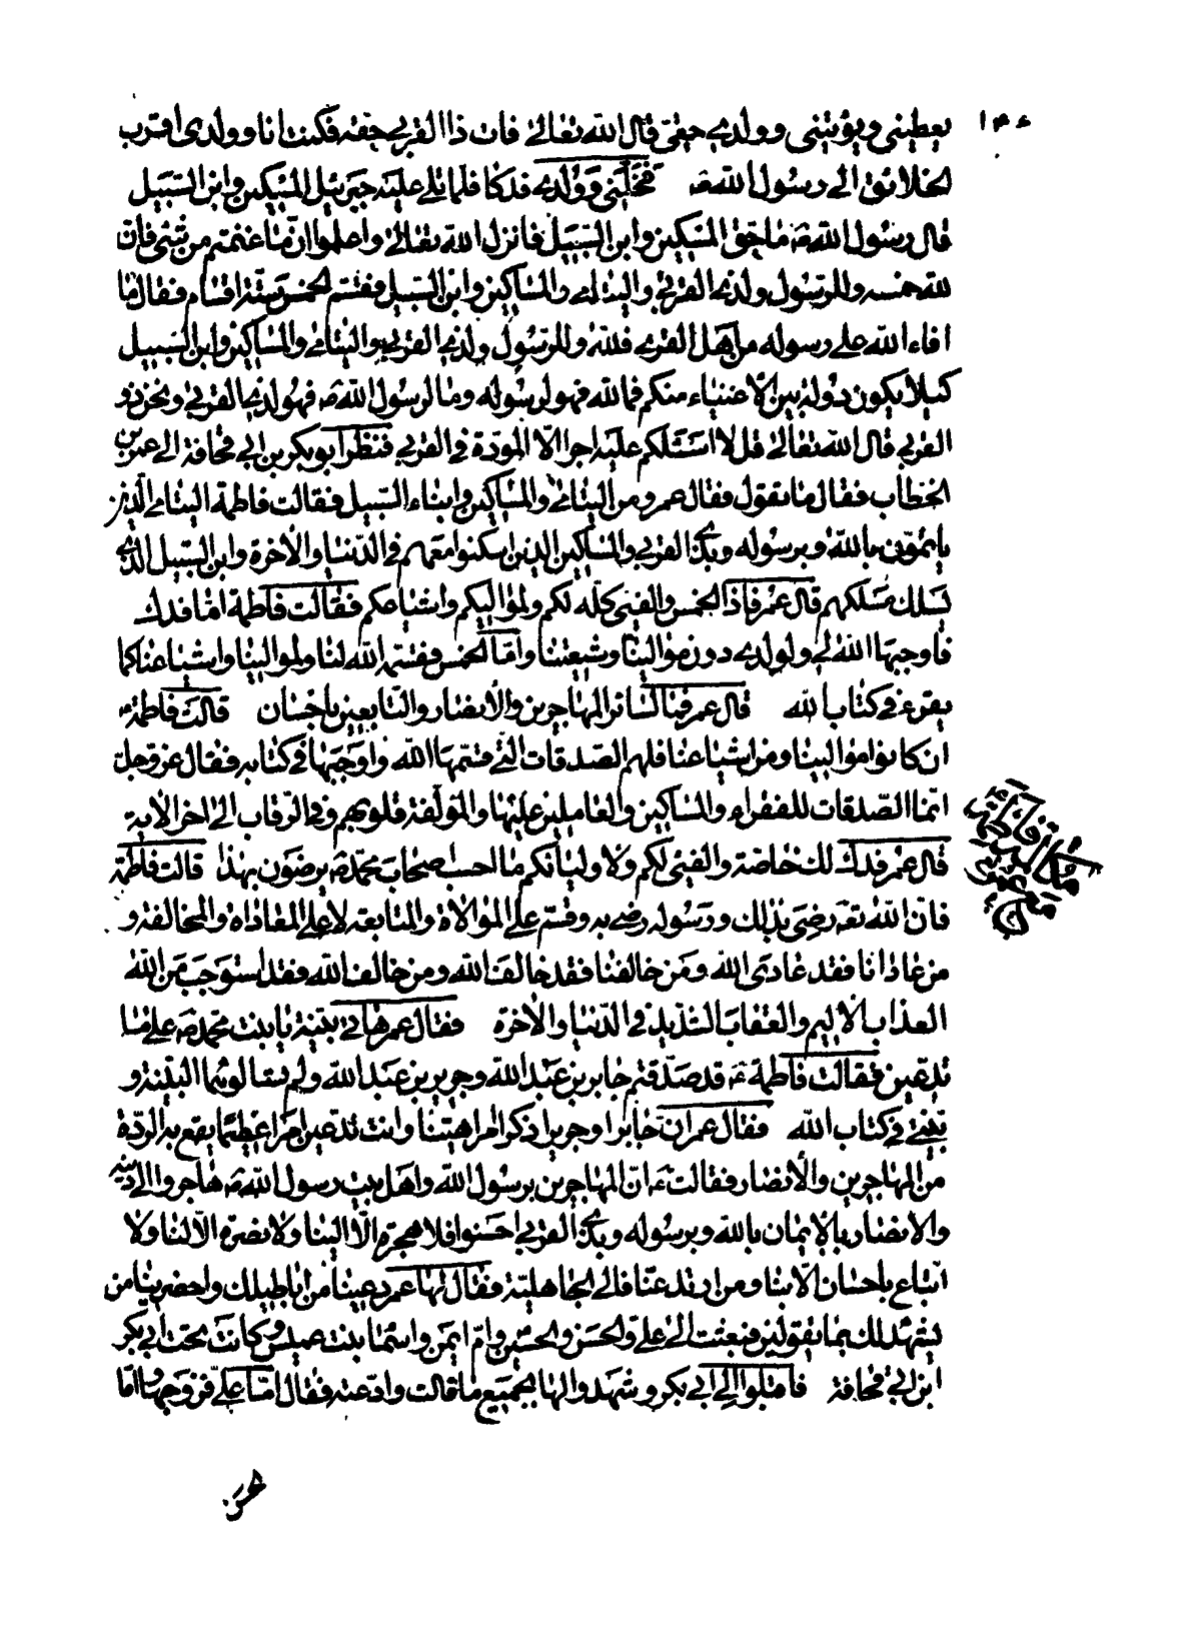 ١٣٤
يعطيني ويؤتيني وولدي حقي قال الله تعالى فات ذا القربى حقه فكنت انا وولدي اقرب
الخلائق الى رسول الله ص فنحلني وولدي فدكا فلما تلى عليه جبرئيل المسكين وابن السبيل
قال رسول الله ص ما حق المسكين وابن السبيل فانزل الله تعالى واعلموا ان ما غنمتم من شئ فان
لله خمسه وللرسول ولذي القربى واليتامى والمساكين وابن السبيل فقسم الخمس ستة اقسام فقال ما
افاء الله على رسوله من اهل القرى فلله وللرسول ولذي القربى واليتامى والمساكين وابن السبيل
كيلا يكون دولة بين الاغنياء منكم فما لله فهو لرسوله وما لرسول الله ص فهو لذي القربى ونحن ذو
القربى قال الله تعالى قل لا اسئلكم عليه اجرا الا المودة في القربى فنظر ابو بكر بن ابي قحافة الى عمر بن
الخطاب فقال ما تقول فقال عمر ومن اليتامى والمساكين وابناء السبيل فقالت فاطمة اليتامى الذين
ياتمون بالله وبرسوله وبذي القربى والمساكين الذين اسكنوا معهم في الدنيا والاخرة وابن السبيل الذي
يسلك مسلكهم قال عمر فاذا الخمس والفئ كله لكم ولمواليكم واشياعكم فقالت فاطمة اما فدك
فاوجبها الله لي ولولدي دون موالينا وشيعتنا واما الخمس فقسمه الله لنا ولموالينا واشياعنا كما
يقرء في كتاب الله قال عمر فما لسائر المهاجرين والانصار والتابعين باحسان قالت فاطمة ع
ان كانوا موالينا ومن اشياعنا فلهم الصدقات التي قسمها الله واوجبها في كتابه فقال عز وجل
انما الصدقات للفقراء والمساكين والعاملين عليها والمؤلفة قلوبهم وفي الرقاب الى اخر الاية
قال عمر فدك لك خاصة والفئ لكم ولاوليائكم ما احسب اصحاب محمد ص يرضون بهذا قالت فاطمة
فان الله تعه رضى بذلك ورسوله رضي به وقسم على الموالاة والمتابعة لا على المعاداة والمخالفة و
من عادانا فقد عادى الله ومن خالفنا فقد خالف الله ومن خالف الله فقد استوجب من الله
العذاب الاليم والعقاب الشديد في الدنيا والاخرة فقال عمر هاتي بينة يا بنت محمد ص على ما
تدعين فقالت فاطمة ع قد صدقتم جابر بن عبد الله وجرير بن عبد الله ولم تسالوهما البينة و
بينتي في كتاب الله فقال عمر ان جابرا وجريرا ذكرا امرا هينا وانت تدعين امرا عظيما يقع به الردة
من المهاجرين والانصار فقالت ع ان المهاجرين برسول الله واهل بيت رسول الله ص هاجروا الى دينه
والانصار بالايمان بالله وبرسوله وبذي القربى احسنوا فلا هجرة الا الينا ولا نصرة الا لنا ولا
اتباع باحسان الا بنا ومن ارتد عنا فالى الجاهلية فقال لها عمر دعينا من اباطيلك واحضرينا من
يشهد لك بما تقولين فبعثت الى علي والحسن والحسين وام ايمن واسماء بنت عميس وكانت تحت ابي بكر
ابن ابي قحافة فاقبلوا الى ابي بكر وشهدوا لها بجميع ما قالت وادعته فقال اما علي فزوجها واما